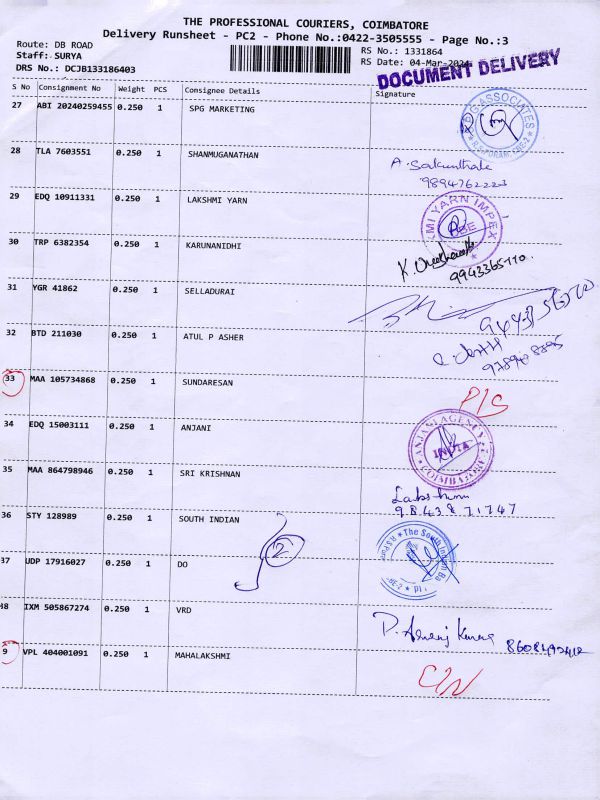 THE PROFESSIONAL COURIERS, COIMBATORE
Delivery Runsheet - PC2 - Phone No.:0422-3505555 - Page No.:3
Route: DB ROAD RS No.: 1331864
Staff: SURYA RS Date: 04-Mar-2024
DRS No.: DCJB133186403 DOCUMENT DELIVERY
S No Consignment No Weight PCS Consignee Details Signature
27 ABI 20240259455 0.250 1 SPG MARKETING
ASSOCIATES
28 TLA 7603551 0.250 1 SHANMUGANATHAN
A. Sakunthala
9894762223
29 EDQ 10911331 0.250 1 LAKSHMI YARN
LMI YARN IMPEX
30 TRP 6382354 0.250 1 KARUNANIDHI
9943365770.
31 YGR 41862 0.250 1 SELLADURAI
32 BTD 211030 0.250 1 ATUL P ASHER
33 MAA 105734868 0.250 1 SUNDARESAN
P/S
34 EDQ 15003111 0.250 1 ANJANI
ANJANI AGENCY
INDIA
COIMBATORE
35 MAA 864798946 0.250 1 SRI KRISHNAN
Lakshmi
9843871747
36 STY 128989 0.250 1 SOUTH INDIAN
The South Indian Ba
2
37 UDP 17916027 0.250 1 DO
48 IXM 505867274 0.250 1 VRD
8608492412
9 VPL 404001091 0.250 1 MAHALAKSHMI